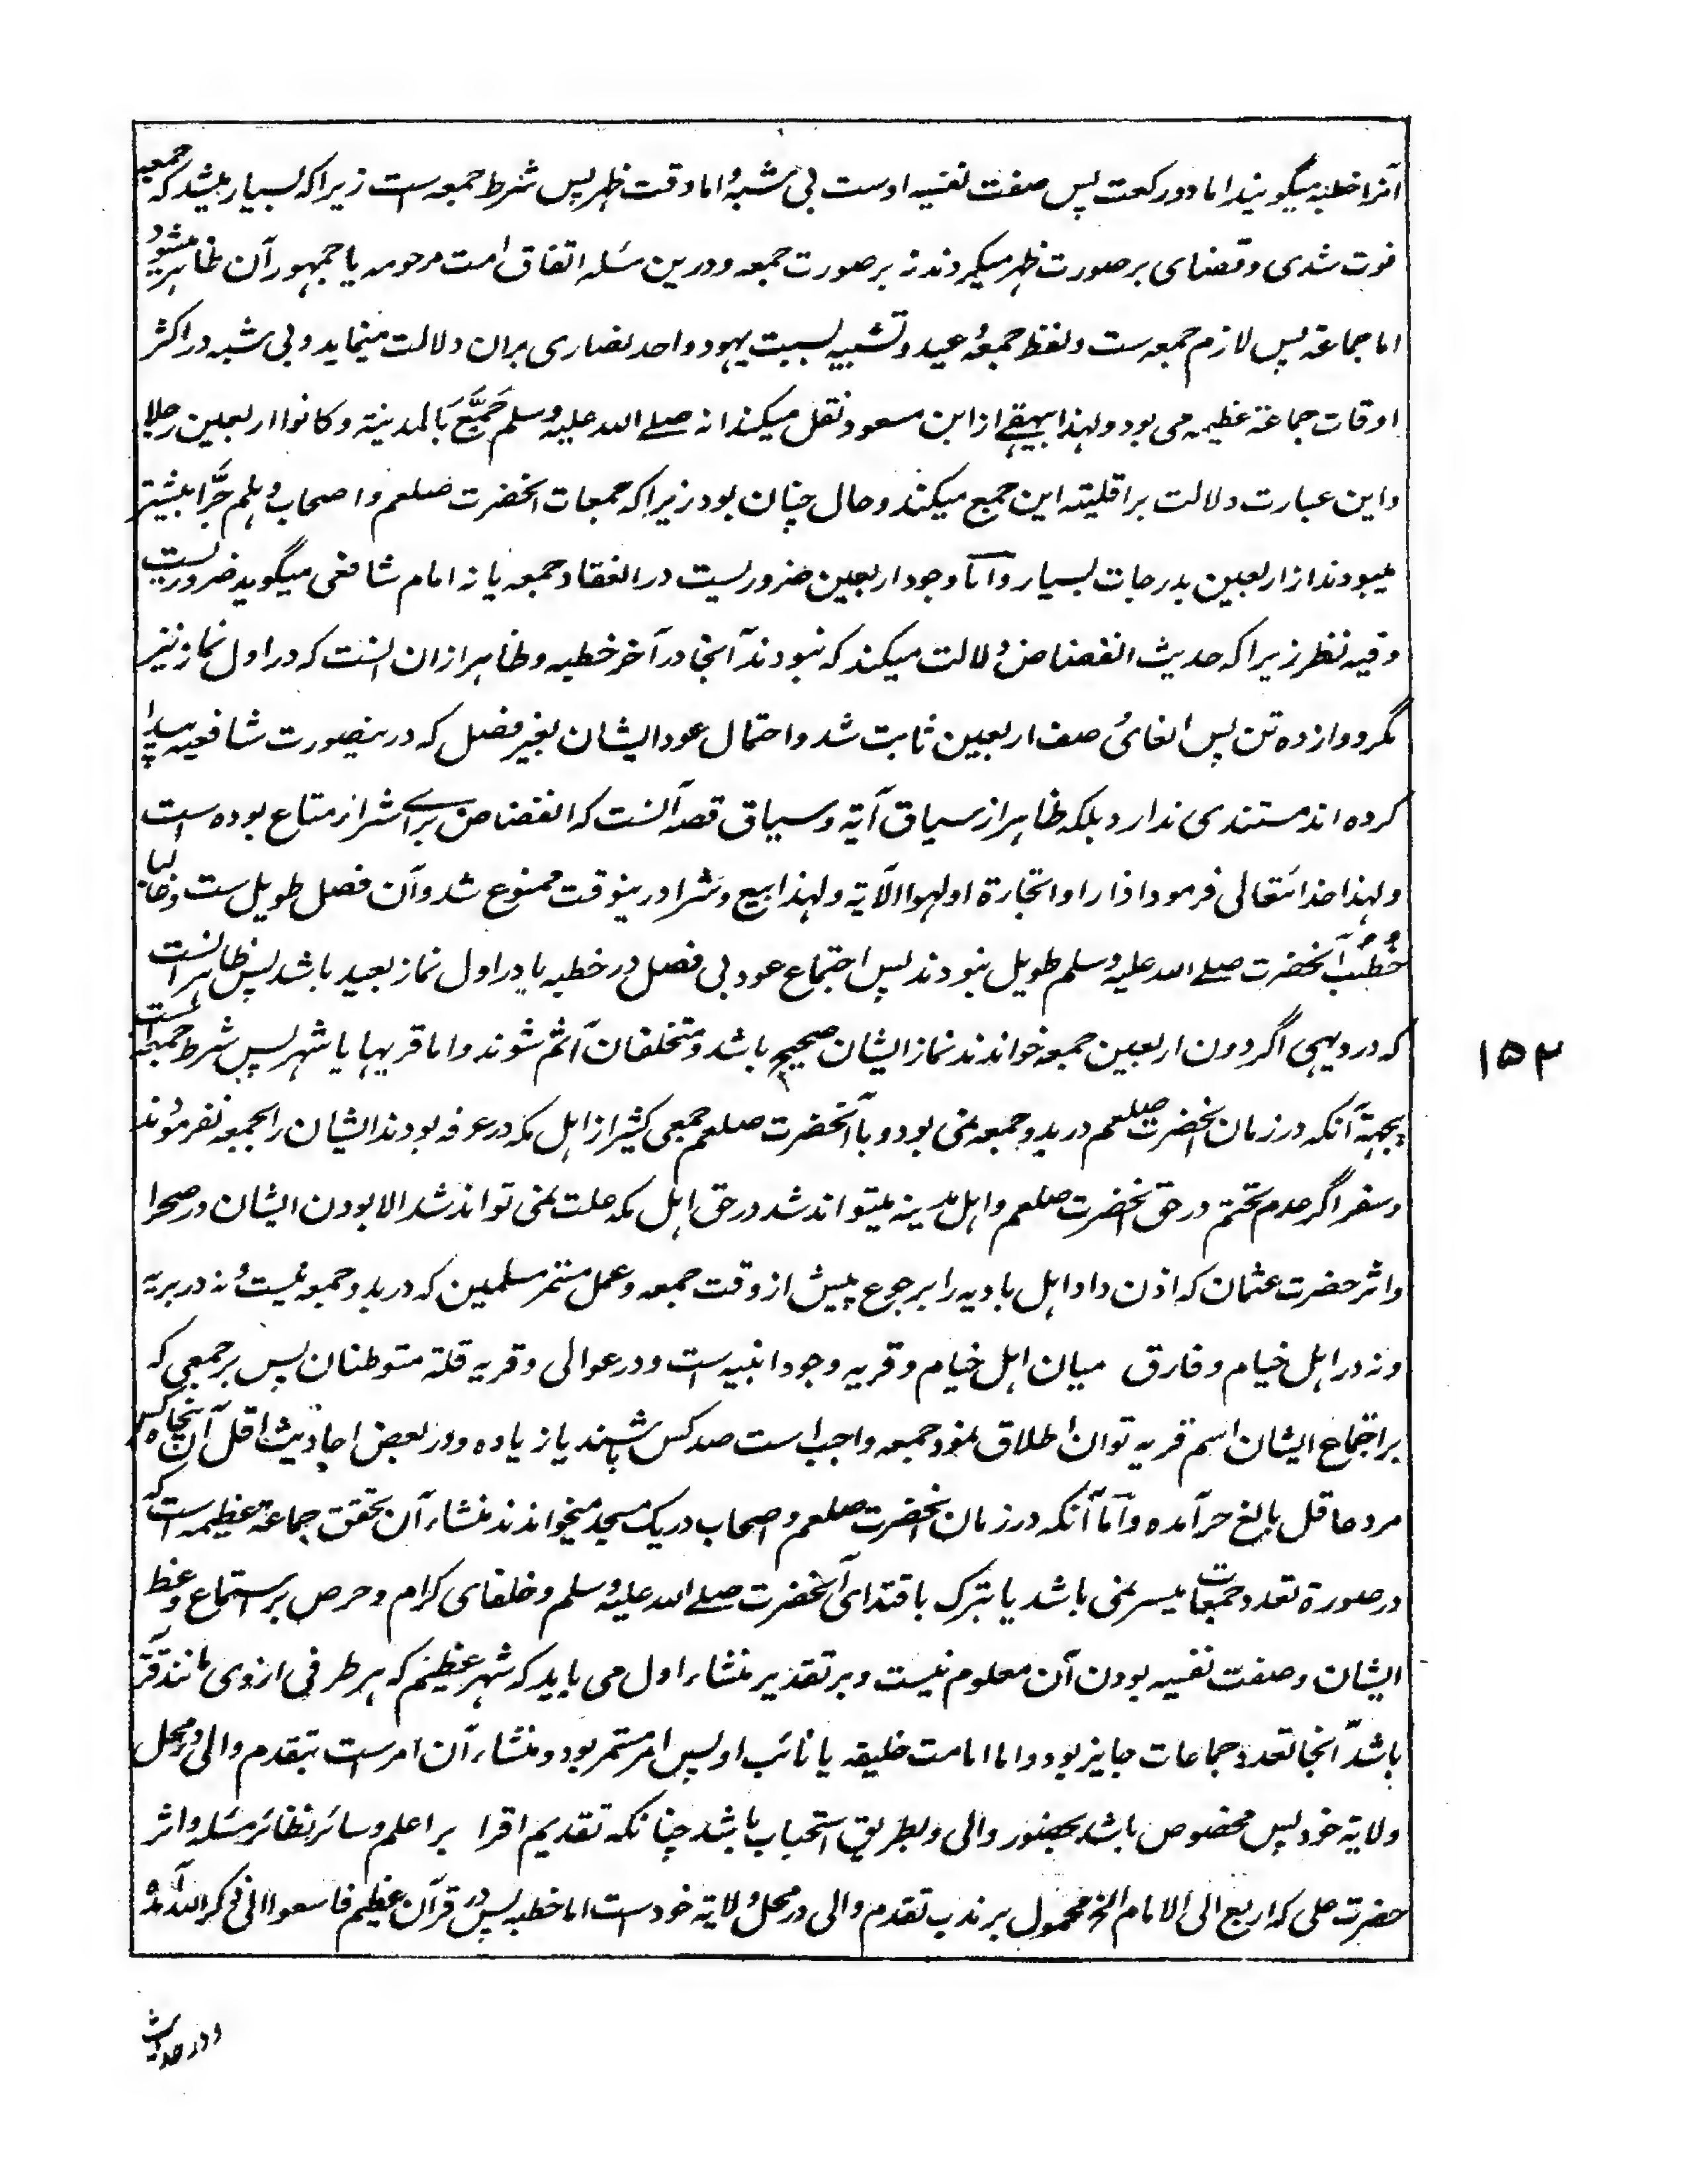 آنرا خطبه میگویند اما دو رکعت پس صفت نفسیه اوست بی شبهُ اما وقت ظهر پس شرط جمعه است زیرا که بسیار میشد که جمعه
فوت شدی و قضای بر صورت ظهر میکردند نه بر صورت جمعه و درین مسئله اتفاق امت مرحومه یا جمهور آن ظاهر میشود
اما جماعة پس لازم جمعه ست و لفظ جمعهُ عید و تشبیه بسبت یهود و احد نصاری بران دلالت مینماید و بی شبه در اکثر
اوقات جماعة عظیمه می بود و لهذا بیهقے از ابن مسعود نقل میکند انه صلے الله علیه وسلم جَمَّعَ بالمدینة و کانوا اربعین رجلا
و این عبارت دلالت بر اقلیته این جمع میکند و حال چنان بود زیرا که جمعات آنحضرت صلعم و اصحاب و هلم جرَّا بیشتر
میبودند از اربعین بدرجات بسیار و امّا وجود اربعین ضروریست در انعقاد جمعه یا نه امام شافعی میگوید ضروریست
و فیه نظر زیرا که حدیث انفضاض دلالت میکند که نبودند آنجا در آخر خطبه و ظاهر ازان انست که در اول نماز نیز
مگر دوازده تن پس الغائ صف اربعین ثابت شد و احتمال عود ایشان بغیر فصل که درینصورت شافعیه پیدا
کرده اند مستندی ندارد بلکه ظاهر از سیاق آیة و سیاق قصه آنست که انفضاض براے شراء متاع بوده است
و لهذا خدا تعالی فرمود اذا راوا تجارة او لهوا الآیة و لهذا بیع و شرا درینوقت ممنوع شد و آن فصل طویل ست و غالبا
خُطُبُ آنحضرت صلے الله علیه وسلم طویل نبودند پس اجتماع عود بی فصل در خطبه یا در اول نماز بعید باشد پس ظاهر آنست
که در دیهی اگر دون اربعین جمعه خواندند نماز ایشان صحیح باشد و متخلفان آثم شوند و اما قریها یا شهر پس شرط جمعه است
بجهة آنکه در زمان آنحضرت صلعم در بدو جمعه نمی بود و با آنحضرت صلعم جمعی کثیر از اهل مکه در عرفه بودند ایشان را بجمعه نفرمودند
و سفر اگر عدم تحتم در حق آنحضرت صلعم و اهل مدینه میتواند شد در حق اهل مکه علت نمی تواند شد الا بودن ایشان در صحرا
و اثر حضرت عثمان که اذن داد اهل بادیه را برجوع پیش از وقت جمعه و عمل مستمر مسلمین که در بدو جمعه نیست نه در بریة
و نه در اهل خیام و فارق میان اهل خیام و قریه وجود ابنیه است و در عوالی و قریه قلة متوطنان پس بر جمعی که
بر اجتماع ایشان اسم قریه توان اطلاق نمود جمعه واجب است صد کس باشند یا زیاده و در بعض احادیث اقل آن پنجاه کس
مرد عاقل بالغ حر آمده و اَمّا آنکه در زمان آنحضرت صلعم و اصحاب در یک مسجد میخواندند منشاء آن تحقق جماعة عظیمه است که
در صورة تعدد جمعات میسر نمی باشد یا تبرک باقتدای آنحضرت صلے الله علیه وسلم و خلفای کرام و حرص بر استماع وعظ
ایشان و صفت نفسیه بودن آن معلوم نیست و بر تقدیر منشاء اول می باید که شهر عظیم که هر طرفی ازوی مانند
باشد آنجا تعدد جماعات جایز بود و اما امامت خلیفه یا نائب او پس امر مستمر بود و منشاء آن امر ست بتقدم والی در محل
ولایة خود پس مخصوص باشد بحضور والی و بطریق استحباب باشد چنانکه تقدیم اقرا بر اعلم و سائر نظائر مسئله و اثر
حضرت علی که اربع الی الامام الخ محمول بر ندب تقدم والی در محل ولایة خودست اما خطبه پس در قرآن عظیم فاسعوا الی ذکر الله آمده
و در حدیث
۱۵۲